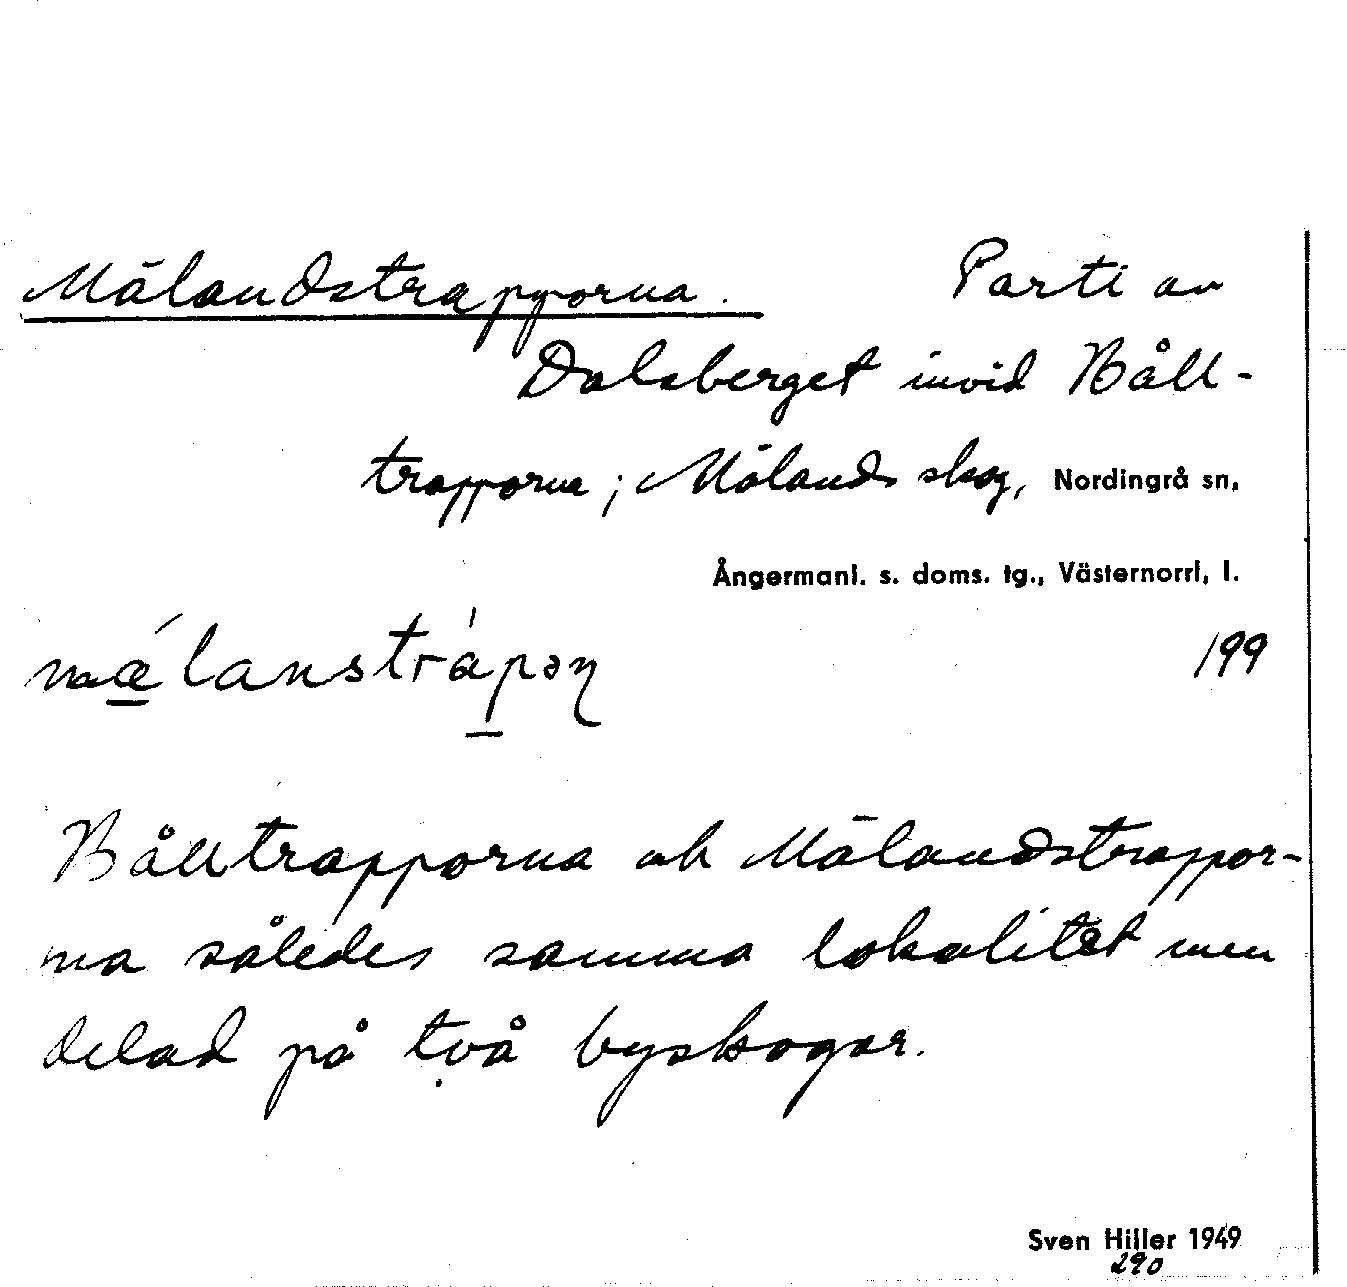 Mälandstrapporna. Parti av
Dalsberget invid Båll-
trapporna; Mälands skog, Nordingrå sn,
Ångermanl. s. doms. tg., Västernorrl, l.
199
Bålltrapporna och Mälandstrappor-
na således samma lokalitet men
delad på två byskogar.
Sven Hiller 1949
290